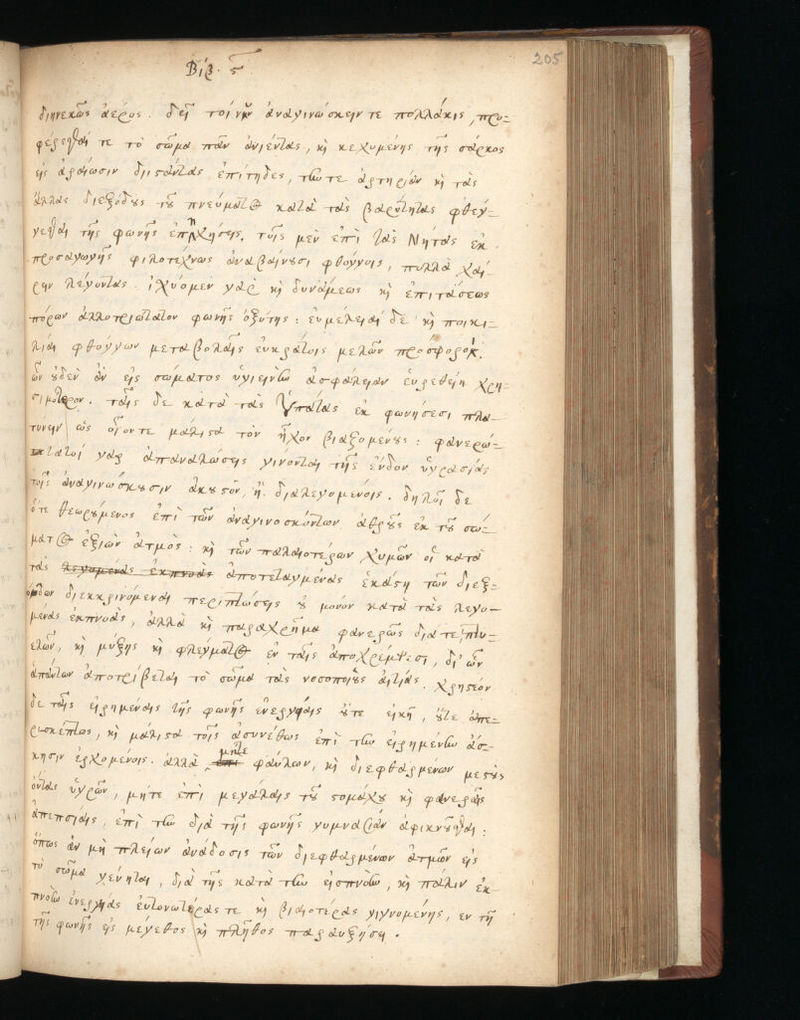 Βιβ. ς
205
διηνεκῶς ἀέρος. δεῖ τοίνυν ἀναγινώσκειν τε πολλάκις, προ=
φέρεσθαί τε τὸ σῶμα πᾶν ἀνιέντας, κὶ κεχυμένης τῆς σάρκος
εἰς ἀραίωσιν διισάντας ἐπίτηδες, τὼ τε ἀρτηρίαν κὶ τὰς
ἄλλας διεξόδους τοῦ πνεύματος κατὰ τὰς βαρύτητας φθέγ=
γεσθαι τῆς φωνῆς ἐπηχήσεις. τοῖς μὲν ἐπὶ τὰς Νήτας ἐκ
προσαγωγῆς φιλοτέχνως ἀναβαίνουσι φθόγγοις, πολλὰ χαί=
ρειν λέγοντας. ἰχύομεν γὰρ κὶ δυνάμεως κὶ ἐπιτάσεως
πόρων ἀλλοτριώτατον φωνῆς ὀξύτης: εὐμέλειαί δὲ κὶ ποικι=
λίαι φθόγγων μεταβολαῖς εὐκράτοις μελῶν πρόσφοροι.
ὧν οὐδὲν ἂν εἰς σώματος ὑγιεινὼ ἀσφάλειαν εὑρεθείη χρη=
σιμότερον. ταῖς δὲ κατὰ τὰς Ὑπάτας ἐκφωνήσεσι πλα=
τύνειν ὡς οἷον τε μάλιστα τὸν ἦχον βιαζομένους: φανερώ=
ταται γὰρ ἀπαναλώσεις γίνονται τῆς ἔνδον ὑγρασίας
τοῖς ἀναγινώσκουσιν ἀκουστόν, ἢ διαλεγομένοις. δηλοῖ δὲ
ὅτε θεωρούμενος ἐπὶ τῶν ἀναγινοσκόντων ἀθροῦς ἐκ τοῦ σώ=
ματος ἐξιὼν ἀτμὸς: κὶ τῶν παλαιοτέρων χυμῶν οἱ κατὰ
τὰς λεγομενὰς ἐκπνοὰς ἀποτεταγμένας ἑκάστη τῶν διεξ=
όδων διεκκρινόμεναι περιπτώσεις οὐ μόνον κατὰ τὰς λεγο=
μένας ἐκπνοὰς, ἀλλὰ κὶ παραχρῆμα φανερῶς διά τε πτυ=
έλων, κὶ μύξης κὶ φλεγματος ἐν ταῖς ἀποχρέμψεσι, δι' ὧν
ἁπάντων ἀποτρίβεται τὸ σῶμα τὰς νοσοποιοὺς αἰτίας. Χρηστέον
δὲ ταῖς εἰρημέναις τῆς φωνῆς ἐνεργείαις οὔτε εἰκῆ, οὔτε ἀπε=
ρισκέπτως, κὶ μάλιστα τοῖς ἀσυνέθως ἐπὶ τὼ εἰρημένω ἄσ=
κησιν ἐρχομένοις. ἀλλὰ μήτε φαύλων, κὶ διεφθαρμένων μεστοὺς
ὄντας ὑγρῶν, μήτε ἐπὶ μεγάλαις τοῦ στομάχου κὶ φανεραῖς
ἀπεπσίαις, ἐπὶ τὼ διὰ τῆς φωνῆς γυμνασίαν ἀφικνεῖσθαι:
ὅπως ἂν μὴ πλείων ἀνάδοσις τῶν διεφθαρμένων ἀτμῶν εἰς
τὸ σῶμα γένηται, διὰ τῆς κατὰ τὼ εἰσπνοὼ, κὶ πάλιν ἐκ=
πνοὼ ἐνεργείας εὐτονωτέρας τε κὶ βιαιοτέρας γιγνομένης, ἐν τῆ
τῆς φωνῆς εἰς μέγεθος κὶ πλῆθος παραυξήσει.